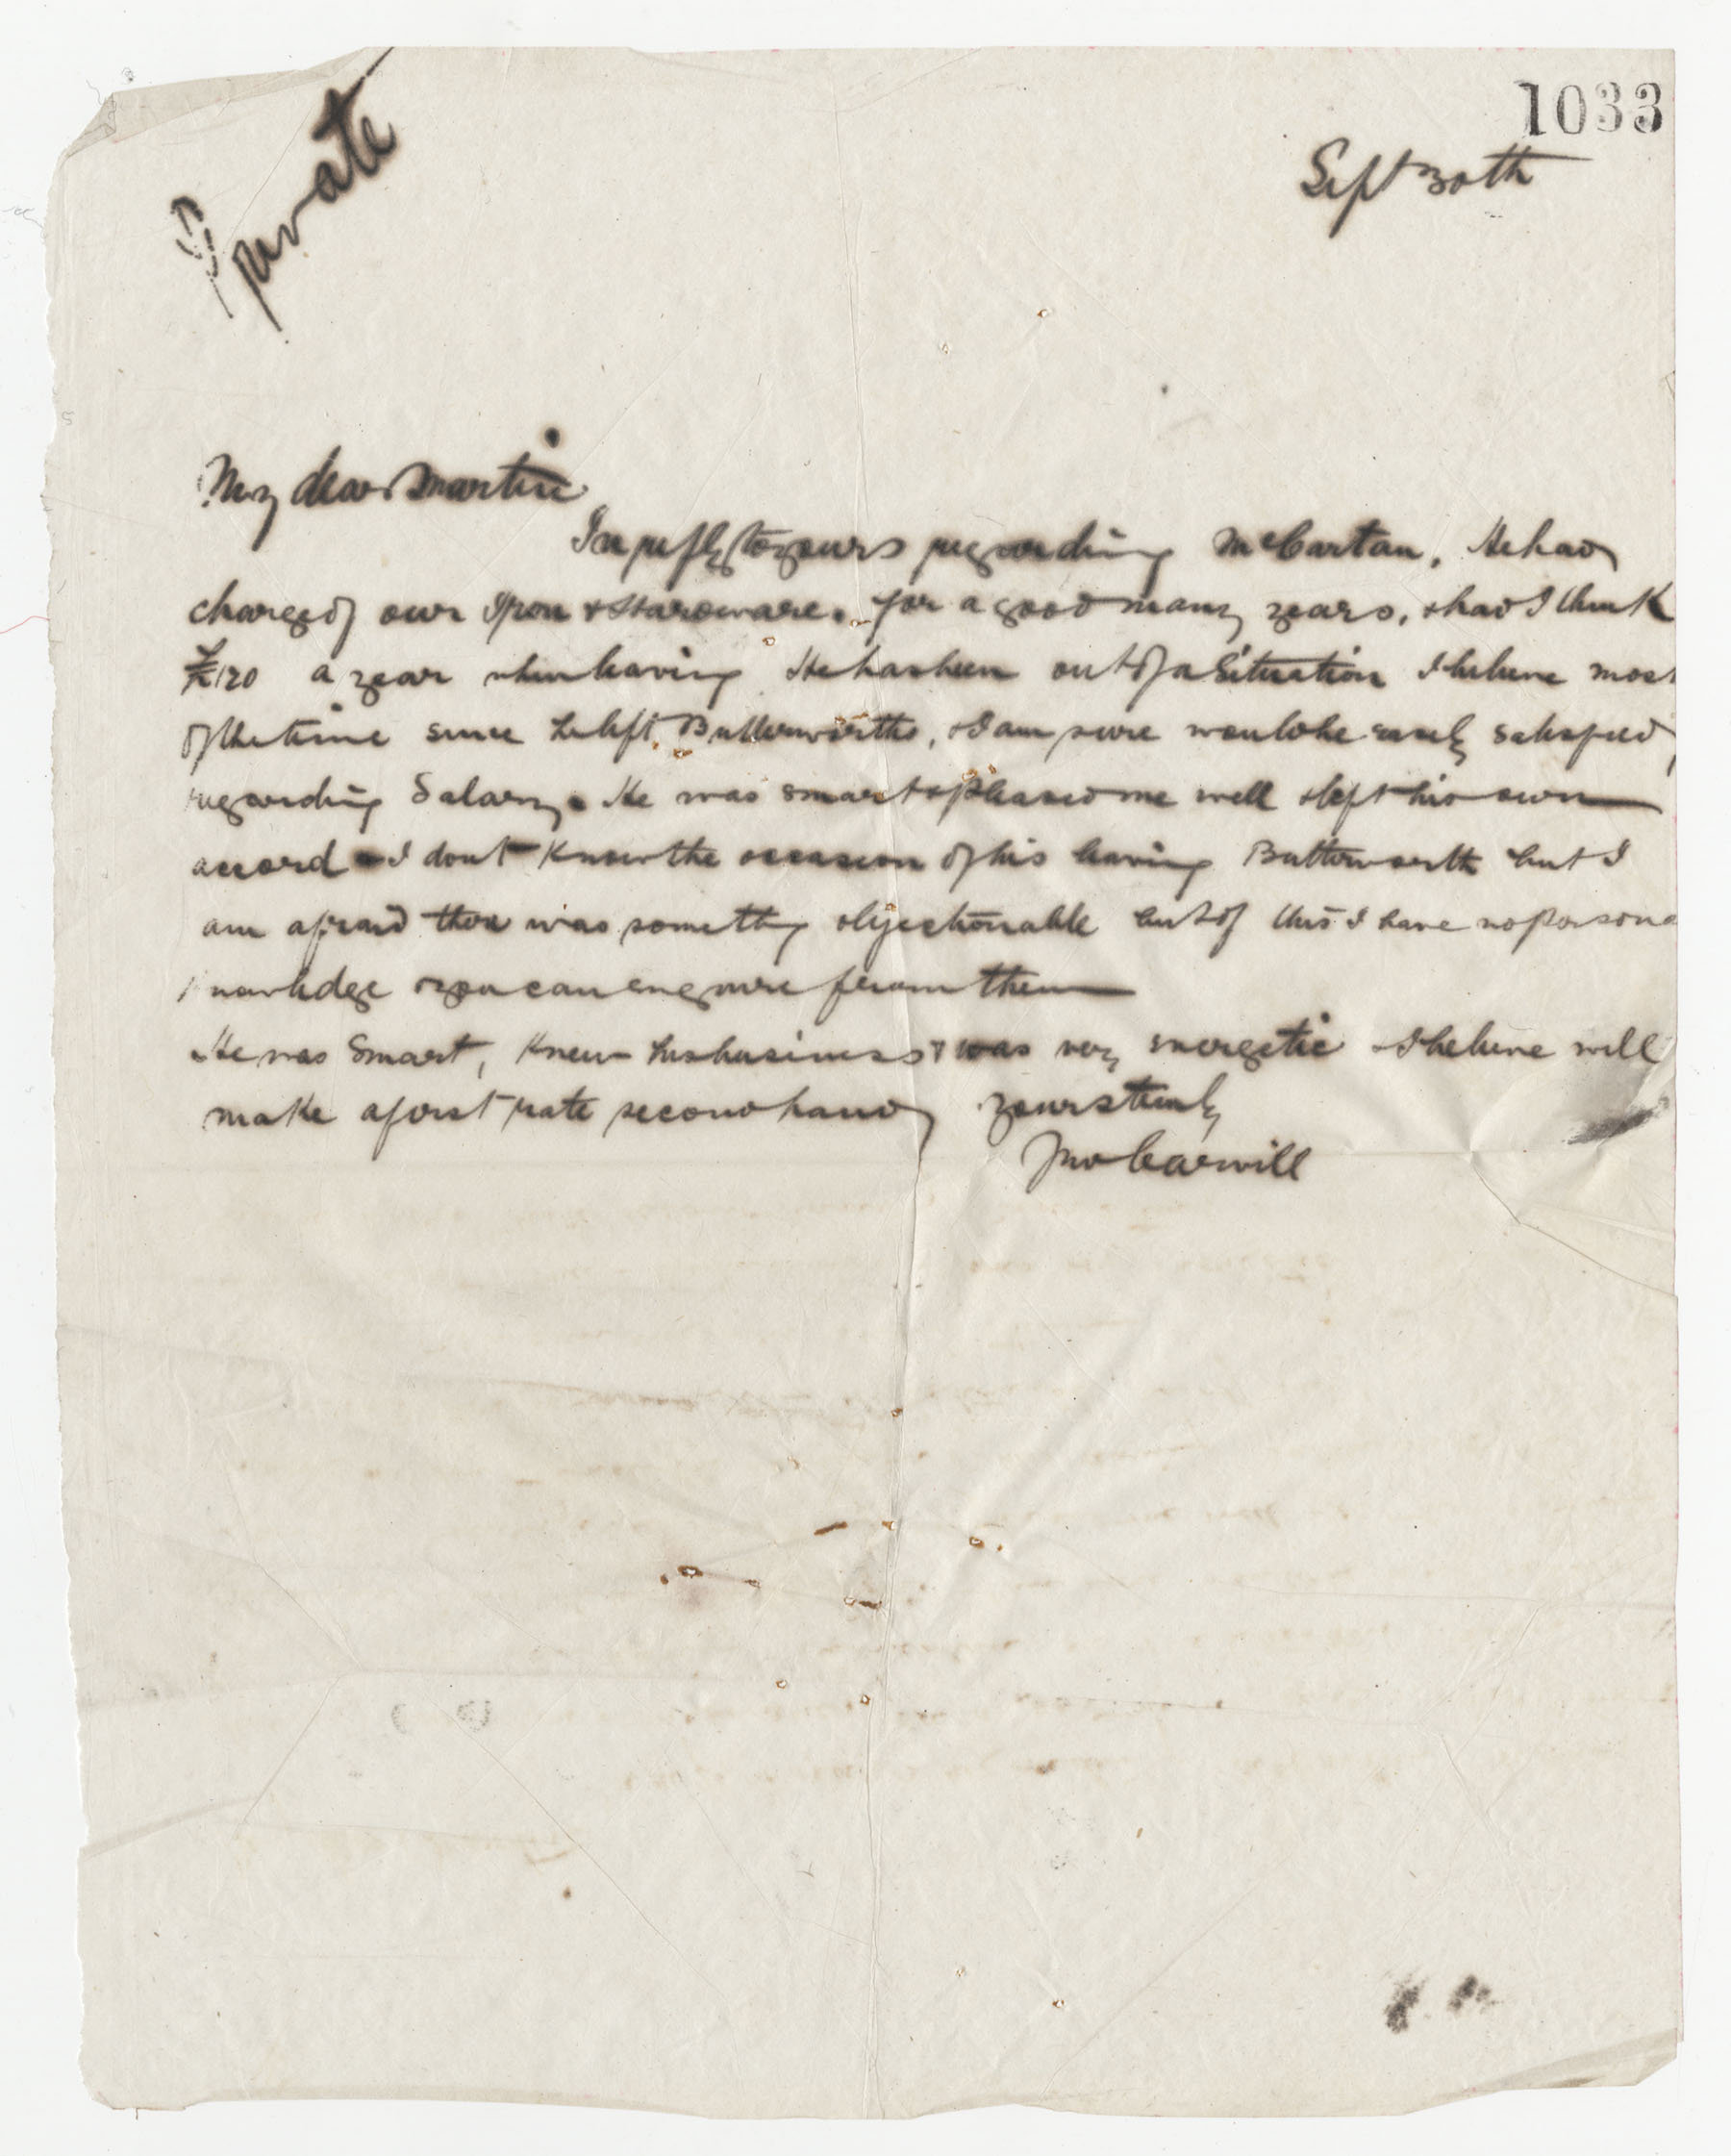 1033
Private
Sept 30th
My dear Martin
In reply to yours regarding McCartan, He had
charge of our Iron & Hardware. for a good many years, & had I think
£120 a year when leaving He has been out of a Situation I believe most
of the time since he left Butterworths, & I am sure would be easily satisfied
regarding Salary. He was smart & pleased me well & left his own
accord - I dont Know the occasion of his leaving Butterworth but I
am afraid there was something objectionable but of this I have no persona
knowledge & you can enquire from them
He was Smart, Knew his business & was very energetic & I believe will
make a first rate second hand yours truly
Jno Carvill